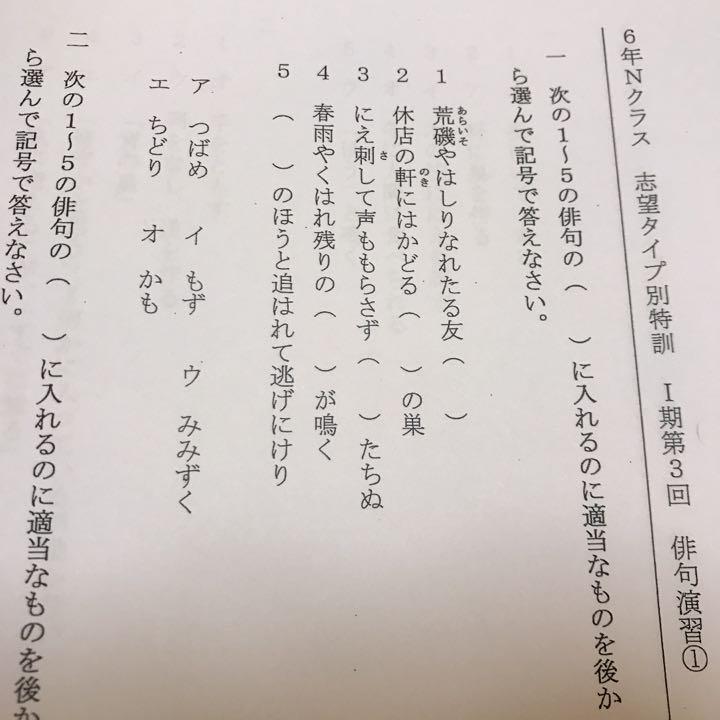 6年Nクラス 志望タイプ別特訓 Ⅰ期第3回 俳句演習①
一 次の1～5の俳句の（ ）に入れるのに適当なものを後か
ら選んで記号で答えなさい。
1 荒磯やはしりなれたる友（ ）
あらいそ
2 休店の軒にはかどる（ ）の巣
のき
3 にえ刺して声ももらさず（ ）たちぬ
さ
4 春雨やくはれ残りの（ ）が鳴く
5 （ ）のほうと追はれて逃げにけり
ア つばめ イ もず ウ みみずく
エ ちどり オ かも
二 次の1～5の俳句の（ ）に入れるのに適当なものを後か
ら選んで記号で答えなさい。